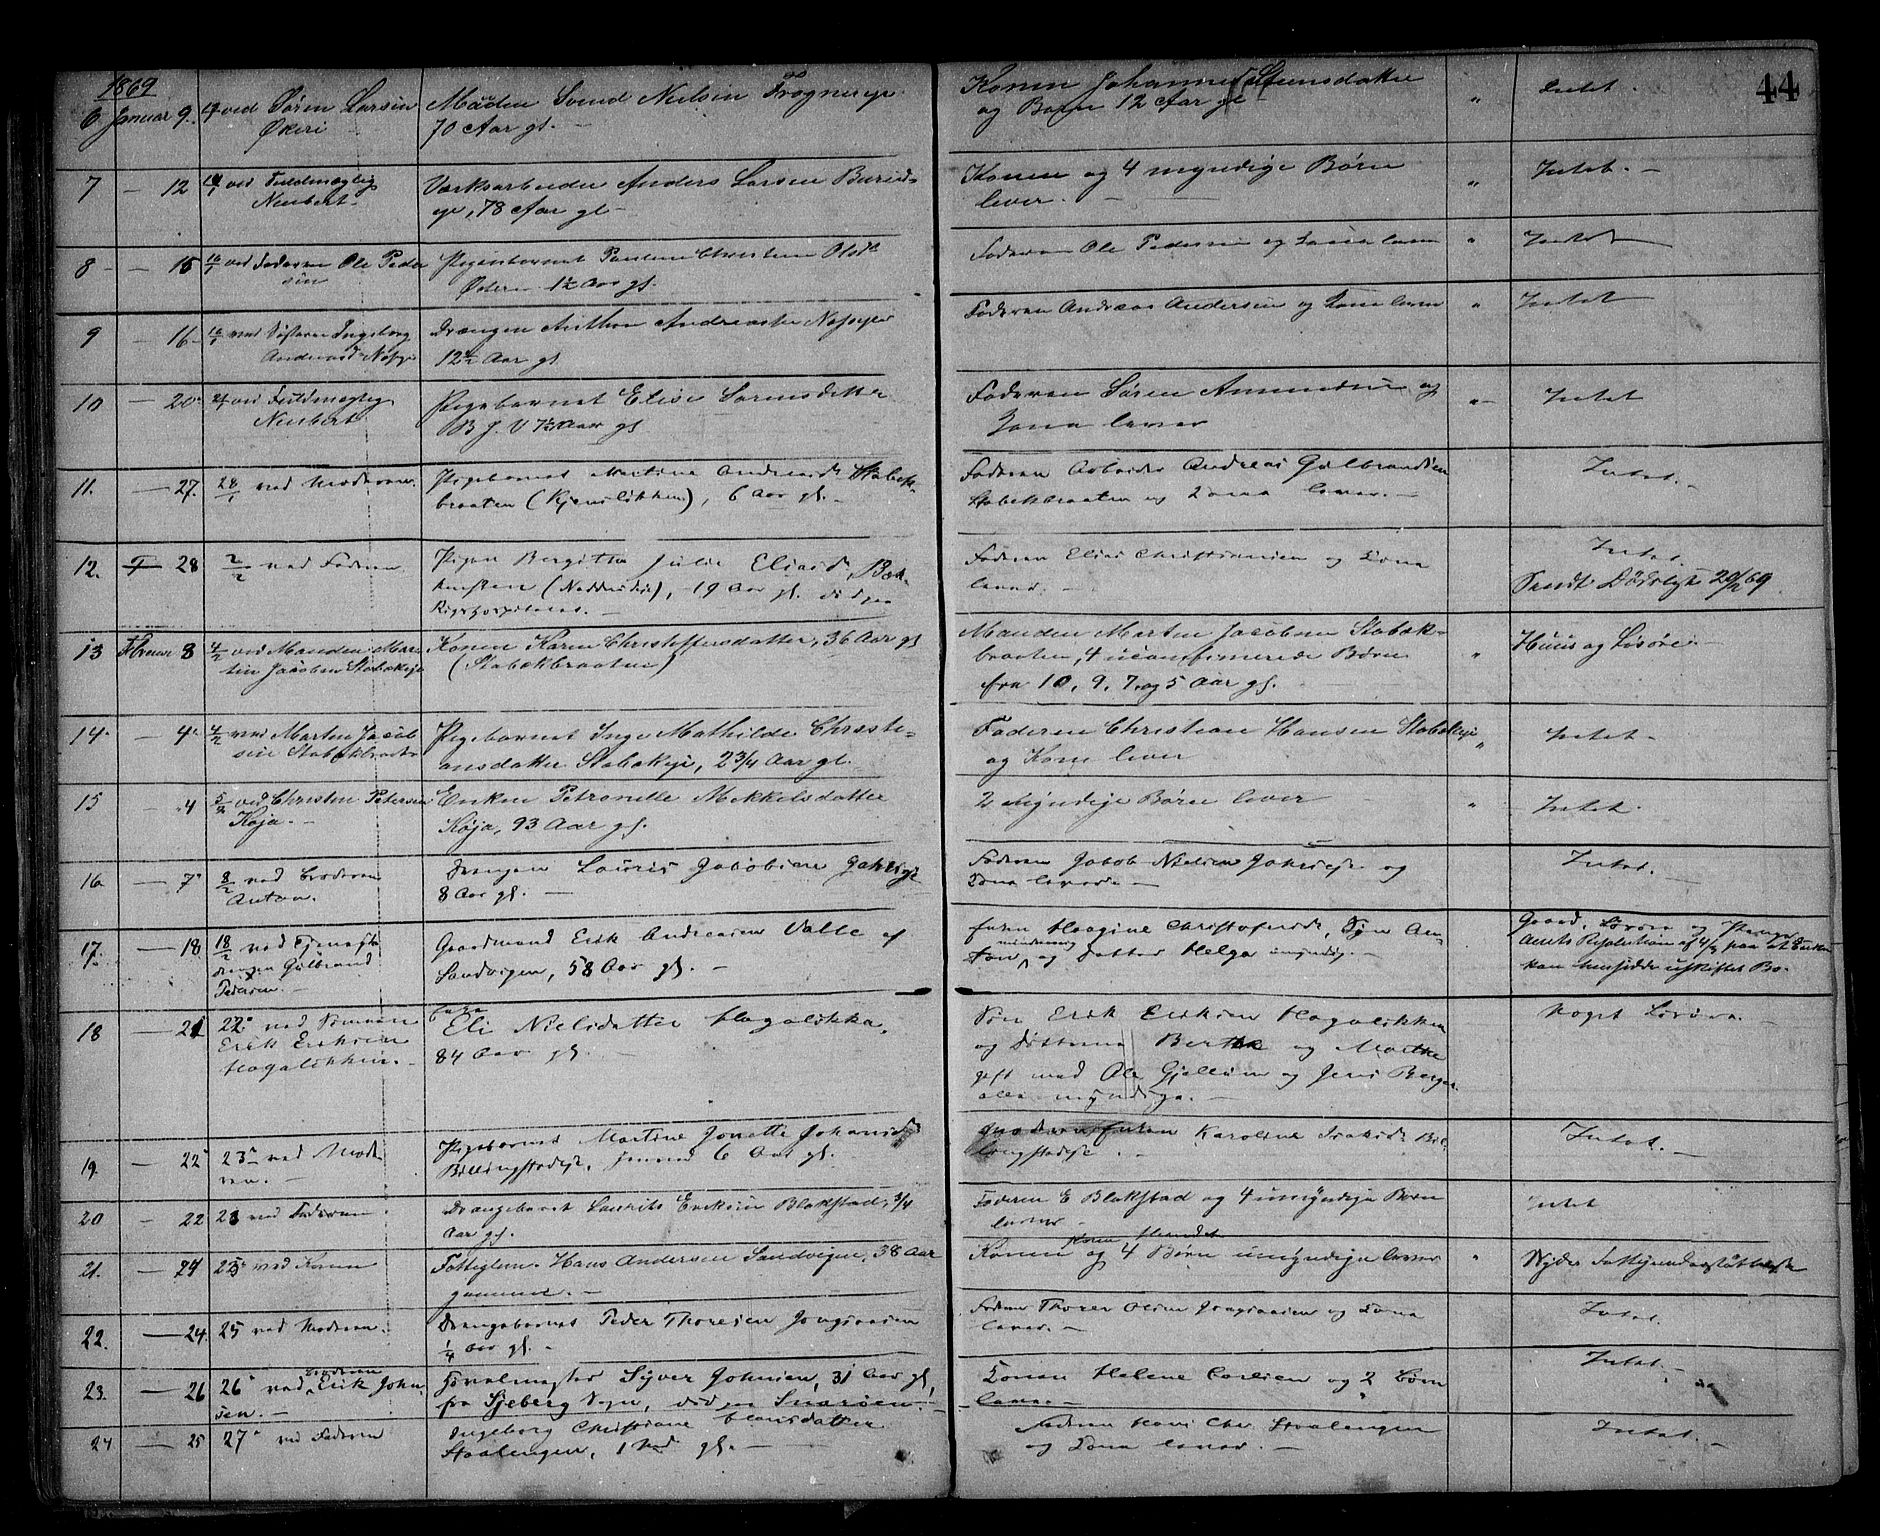 1869
44
6 Januar 9. ved Søren Larsen
Økeri
Manden Svend Nielsen Frognereje
70 Aar gl.
Konen Johanne Steensdatter
og Børn 12 Aar gl
" Intet.
7 — 12 ved Fuldmægtig
Neubert
Værksarbeider Anders Larsen Bærums-
eje, 78 Aar gl —
Konen og 4 myndige Børn
lever. —
" Intet. —
8 — 15 ved Faderen Ole Peder
sen
Pigebarnet Pauline Christine Olsd.
1½ Aar gl.
Faderen Ole Pedersen og Kona lever
" Intet
9 — 16 ved Søsteren Ingeborg
Andreasd
Drengen Anthon Andreassen
12½ Aar gl
Faderen Andreas Andersen og Kona lever
" Intet
10 — 20 ved Fuldmægtig
Neubert
Pigebarnet Elise Sørensdatter
B. J. V. Aar gl
Faderen Søren Ammundsen og
Kona lever
" Intet
11. — 27. 28/1 ved Moderen.
Pigebarnet Martine Andreasd. Stabæk-
braaten (Kjonslikken), 6 Aar gl. —
Faderen Arbeider Andreas Gulbrandsen
Stabekbraaten og Kona lever. —
Intet. —
12. 28 2/2 ved Faderen
Pigen Bergitte Julie Eliasd. Bæk-
kensten (Nadderudeje), 19 Aar gl. død paa
Rigshospitalet. —
Faderen Elias Christiansen og Kona
lever. —
Intet.
Sendt Dødsliste 20/2 69
13 Februar 3 4/2 ved Manden Mar-
tin Jacobsen Stabækeje
Konen Karen Christoffersdatter, 36 Aar gl
(Stabækbraaten)
Manden Martin Jacobsen Stabæk-
braaten, 4 uconfirmerede Børn
fra 10, 9, 7, og 5 Aar gl. —
" Huus og Løsøre. —
14. — 4. 4/2 ved Martin Jacob
sen Stabækbraaten
Pigebarnet Inge Mathilde Christi-
ansdatter Stabækeje, 2 3/4 Aar gl. —
Faderen Christian Hansen Stabækeje
og Kone lever
" Intet —
15 — 4 5/2 ved Christen Petersen
Høja. —
Enken Petronelle Mekkelsdatter
Høja, 93 Aar gl.
2 Myndige Børn lever
" Intet.
16 — 7 8/2 ved Broderen
Anton.
Drengen Lauris Jacobsen
8 Aar gl. —
Faderen Jacob Nielsen og
Kona lever. —
Intet. —
17. — 18 18/2 ved Tjeneste
drengen Gulbrand
Pedersen. —
Gaardmand Erik Andreasen Valle af
Sandvigen, 58 Aar gl. —
Enken Hagine Christofersd., Søn An-
ton mindreaarig og Datter Helga umyndig. —
Gaard, Løsøre og Penge
Amts Resolution af 4/3 paa at Enken
kan hensidde i uskiftet Bo. —
18 — 21 22. ved Sønnen
Erik Eriksen
Hagalikken. —
Enke
Eli Nielsdatter Hagalikka,
84 Aar gl. —
Søn Erik Eriksen Hagalikken
og Døttrene Berthe og Marthe
gift med Ole Gjellum og Jens Berger
alle myndige. —
Noget Løsøre. —
19. — 22 23 ved Mode
ren. —
Pigebarnet Martine Jonette Johansd.
Billingstadeje, 6 Aar gl. —
Karoline Isaksd. Bil-
lingstadeje. —
Intet. —
20 — 22 23 ved Faderen.
Drengebarnet Laurits Eriksen Blakstad, 3/4
Aar gl.
Faderen E Blakstad og 4 umyndige Børn
lever —
Intet
21. — 24 25 ved Konen
Fattiglem. Hans Andersen Sandvigen, 38 Aar
gammel. —
Konen og 4 Børn umyndige lever
" Nyder Fattigunderstøttelse
22. — 24. 25 ved Moderen.
Drengebarnet Peder Thoresen Jongsaasen
¼ Aar gl. —
Faderen Thorer Olsen Jongsaasen og Kona
lever. —
Intet.
23. — 26 26 ved Broderen Erik John-
sen. —
Syver Johnsen, 31 Aar gl,
fra Sogn, død paa Snarøen. —
Konen Helene Carlsen og 2 Børn
lever. —
Intet. —
24 — 25 27 ved Faderen
Ingeborg Christiane Hansdatter
Staalengen, 1 Md gl. —
Faderen Hans Chr. Staalengen
og Kona lever. —
Intet. —